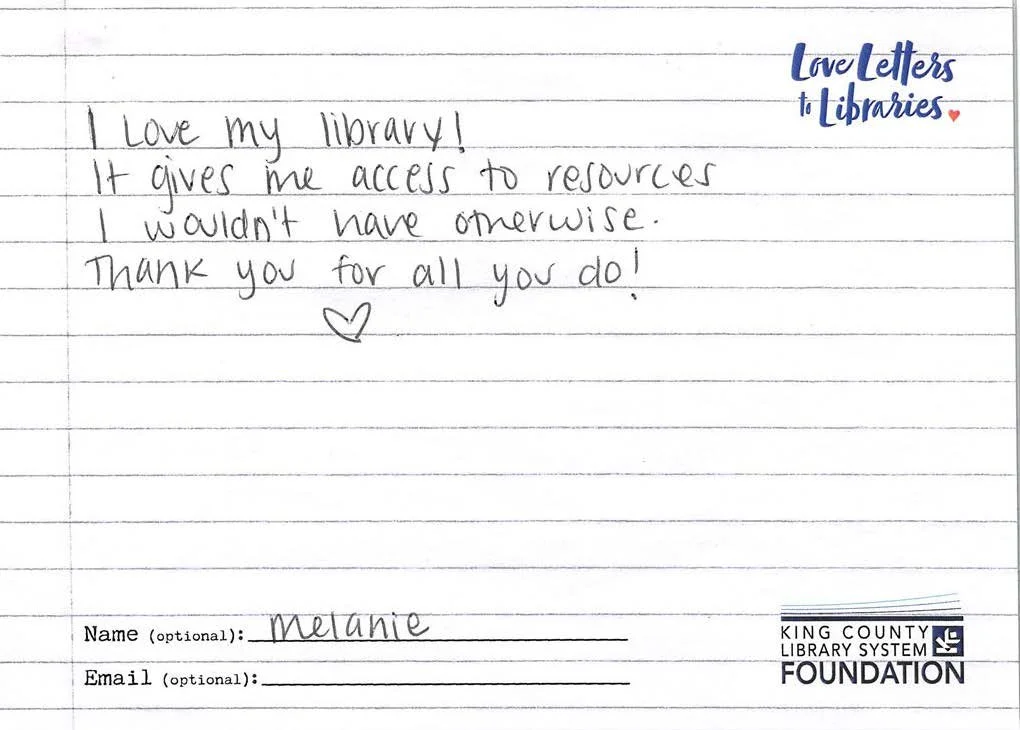 Love Letters
to Libraries.
I Love my library!
It gives me access to resources
I wouldn't have otherwise.
Thank you for all you do!
Name (optional): Melanie
Email (optional):
KING COUNTY
LIBRARY SYSTEM
FOUNDATION